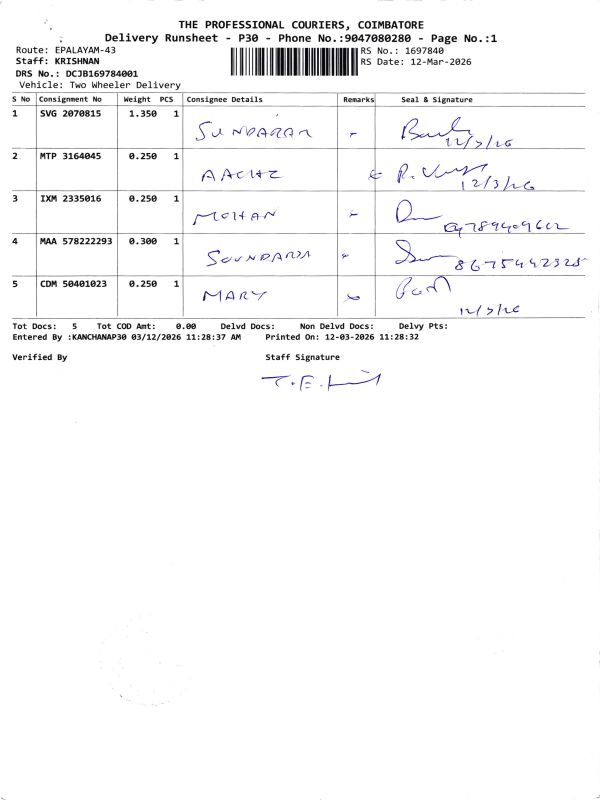 THE PROFESSIONAL COURIERS, COIMBATORE
Delivery Runsheet - P30 - Phone No.:9047080280 - Page No.:1
Route: EPALAYAM-43 RS No.: 1697840
Staff: KRISHNAN RS Date: 12-Mar-2026
DRS No.: DCJB169784001
Vehicle: Two Wheeler Delivery
S No Consignment No Weight PCS Consignee Details Remarks Seal & Signature
1 SVG 2070815 1.350 1 SUNDARAR
12/3/26
2 MTP 3164045 0.250 1
12/3/26
3 IXM 2335016 0.250 1 MOHAN
4 MAA 578222293 0.300 1
8675442325
5 CDM 50401023 0.250 1 MARY
12/3/26
Tot Docs: 5 Tot COD Amt: 0.00 Delvd Docs: Non Delvd Docs: Delvy Pts:
Entered By :KANCHANAP30 03/12/2026 11:28:37 AM Printed On: 12-03-2026 11:28:32
Verified By Staff Signature